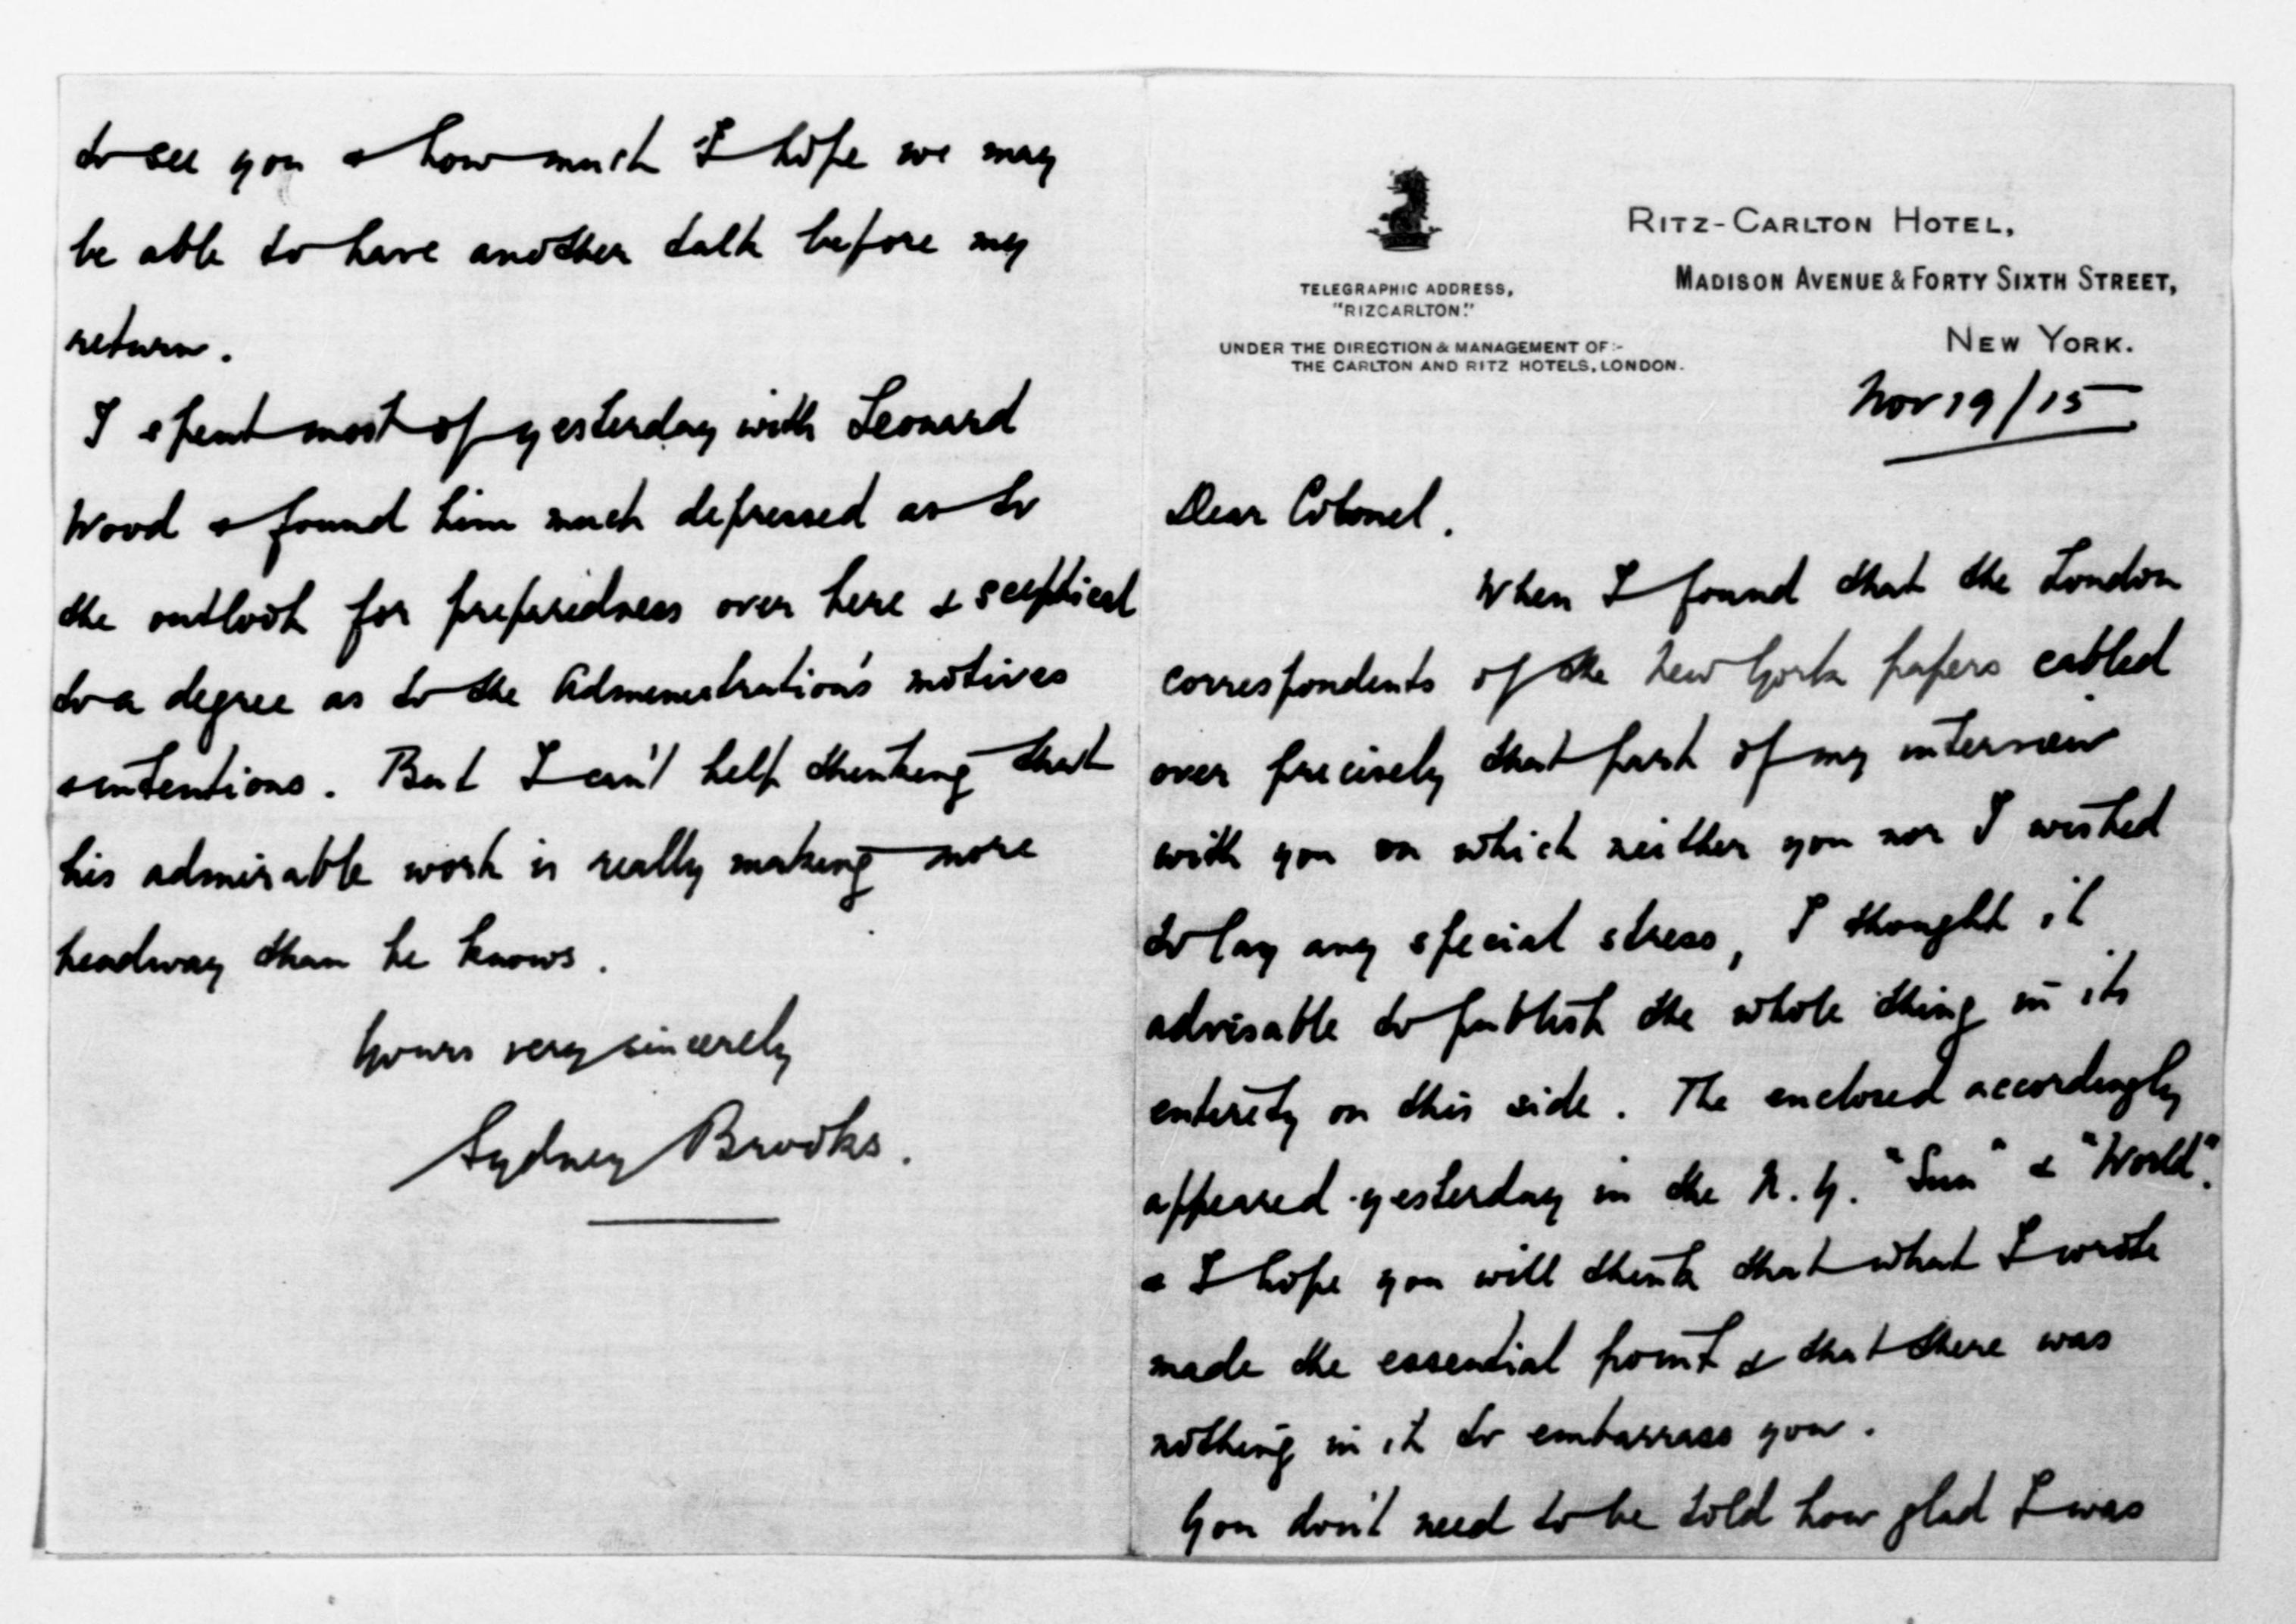 TELEGRAPHIC ADDRESS,
"RIZCARLTON."
UNDER THE DIRECTION & MANAGEMENT OF:-
THE CARLTON AND RITZ HOTELS, LONDON.
RITZ-CARLTON HOTEL,
MADISON AVENUE & FORTY SIXTH STREET,
NEW YORK.
Nov 19/15
Dear Colonel.
When I found that the London
correspondents of the New York papers cabled
over precisely that part of my interview
with you on which neither you nor I wished
to lay any special stress, I thought it
advisable to publish the whole thing in its
entirety on this side. The enclosed accordingly
appeared yesterday in the N.Y. "Sun" & "World".
& I hope you will think that what I wrote
made the essential point & that there was
nothing in it to embarrass you.
You don't need to be told how glad I was
to see you & how much I hope we may
be able to have another talk before my
return.
I spent most of yesterday with Leonard
Wood & found him much depressed as to
the outlook for preparedness over here & sceptical
to a degree as to the Administration's motives
& intentions. But I can't help thinking that
his admirable work is really making more
headway than he knows.
Yours very sincerely
Sydney Brooks.